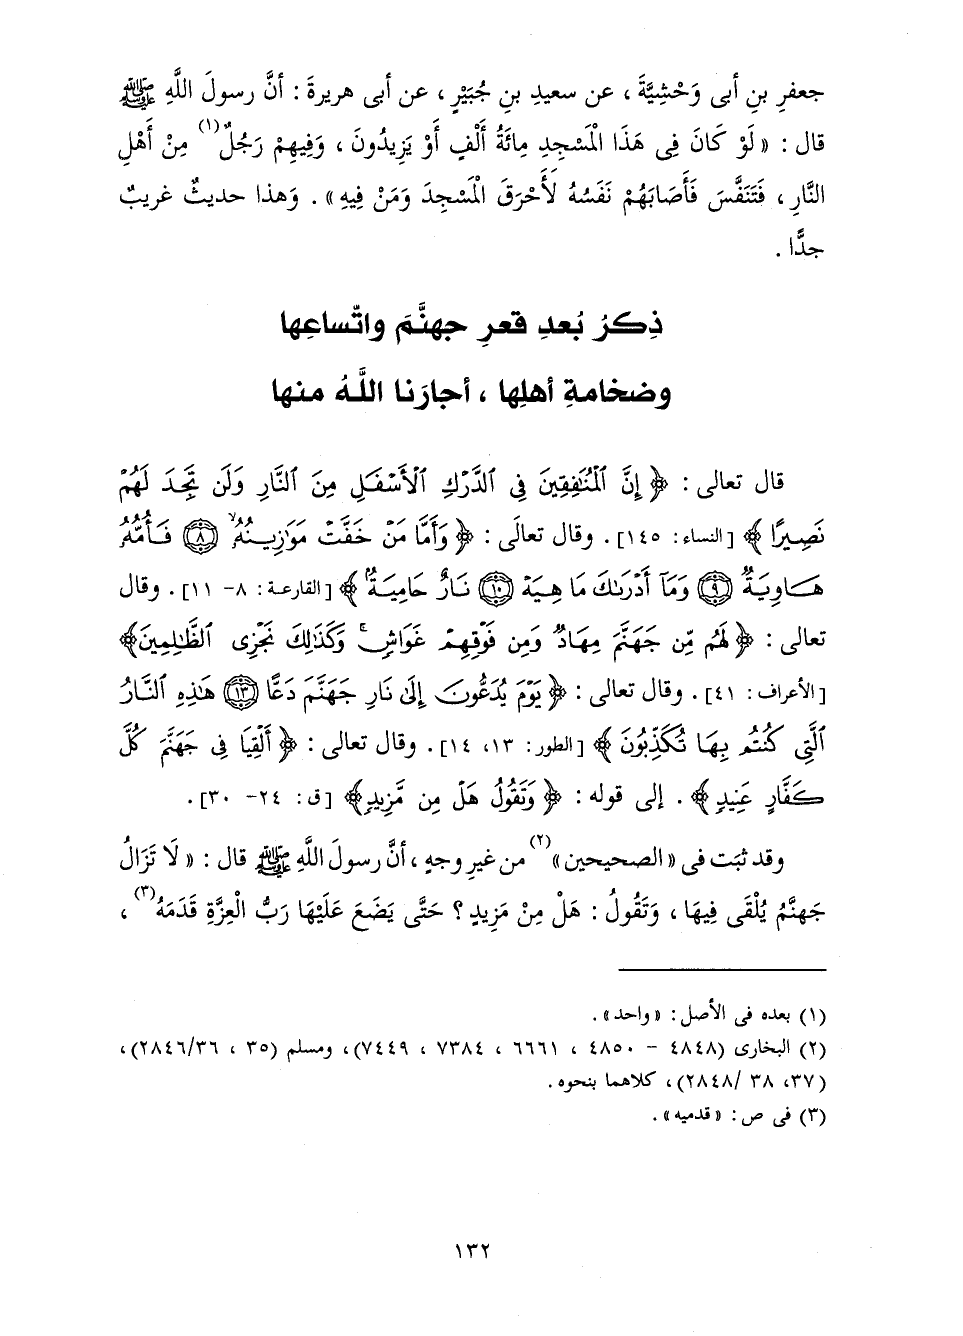 جعفرِ بنِ أبى وَحْشِيَّةَ ، عن سعيدِ بنِ جُبَيْرٍ ، عن أبى هريرةَ : أنَّ رسولَ اللَّهِ ﷺ
قال : « لَوْ كَانَ فِى هَذَا الْمَسْجِدِ مِائَةُ أَلْفٍ أَوْ يَزِيدُونَ ، وَفِيهِمْ رَجُلٌ(١) مِنْ أَهْلِ
النَّارِ ، فَتَنَفَّسَ فَأَصَابَهُمْ نَفَسُهُ لَأَحْرَقَ الْمَسْجِدَ وَمَنْ فِيهِ» . وَهذا حديثٌ غريبٌ
جدًّا .
ذِكرُ بُعدِ قعرِ جهنَّمَ واتّساعِها
وضخامةِ أهلِها ، أجارَنا اللَّهُ منها
قال تعالى : ﴿ إِنَّ الْمُنَٰفِقِينَ فِى الدَّرْكِ الْأَسْفَلِ مِنَ النَّارِ وَلَن تَجِدَ لَهُمْ
نَصِيرًا ﴾ [النساء: ١٤٥] . وقال تعالَى : ﴿ وَأَمَّا مَنْ خَفَّتْ مَوَٰزِينُهُۥ ﴿٨﴾ فَأُمُّهُۥ
هَاوِيَةٌ ﴿٩﴾ وَمَآ أَدْرَىٰكَ مَا هِيَهْ ﴿١٠﴾ نَارٌ حَامِيَةٌۢ ﴾ [القارعة: ٨- ١١] . وقال
تعالى : ﴿ لَهُم مِّن جَهَنَّمَ مِهَادٌ وَمِن فَوْقِهِمْ غَوَاشٍ ۚ وَكَذَٰلِكَ نَجْزِى الظَّٰلِمِينَ﴾
[الأعراف: ٤١] . وقال تعالى : ﴿ يَوْمَ يُدَعُّونَ إِلَىٰ نَارِ جَهَنَّمَ دَعًّا ﴿١٣﴾ هَٰذِهِ النَّارُ
الَّتِى كُنتُم بِهَا تُكَذِّبُونَ ﴾ [الطور: ١٣، ١٤] . وقال تعالى : ﴿ أَلْقِيَا فِى جَهَنَّمَ كُلَّ
كَفَّارٍ عَنِيدٍ ﴾ . إلى قوله : ﴿ وَتَقُولُ هَلْ مِن مَّزِيدٍ﴾ [ق: ٢٤- ٣٠] .
وقد ثبَت فى «الصحيحين»(٢) من غيرِ وجهٍ ، أنَّ رسولَ اللَّهِ ﷺ قال : « لَا تَزَالُ
جَهَنَّمُ يُلْقَى فِيهَا ، وَتَقُولُ : هَلْ مِنْ مَزِيدٍ ؟ حَتَّى يَضَعَ عَلَيْهَا رَبُّ الْعِزَّةِ قَدَمَهُ(٣) ،
(١) بعده فى الأصل : «واحد» .
(٢) البخارى (٤٨٤٨ - ٤٨٥٠ ، ٦٦٦١ ، ٧٣٨٤ ، ٧٤٤٩)، ومسلم (٣٥ ، ٢٨٤٦/٣٦)،
(٣٧، ٣٨ /٢٨٤٨)، كلاهما بنحوه .
(٣) فى ص : «قدميه» .
١٣٢